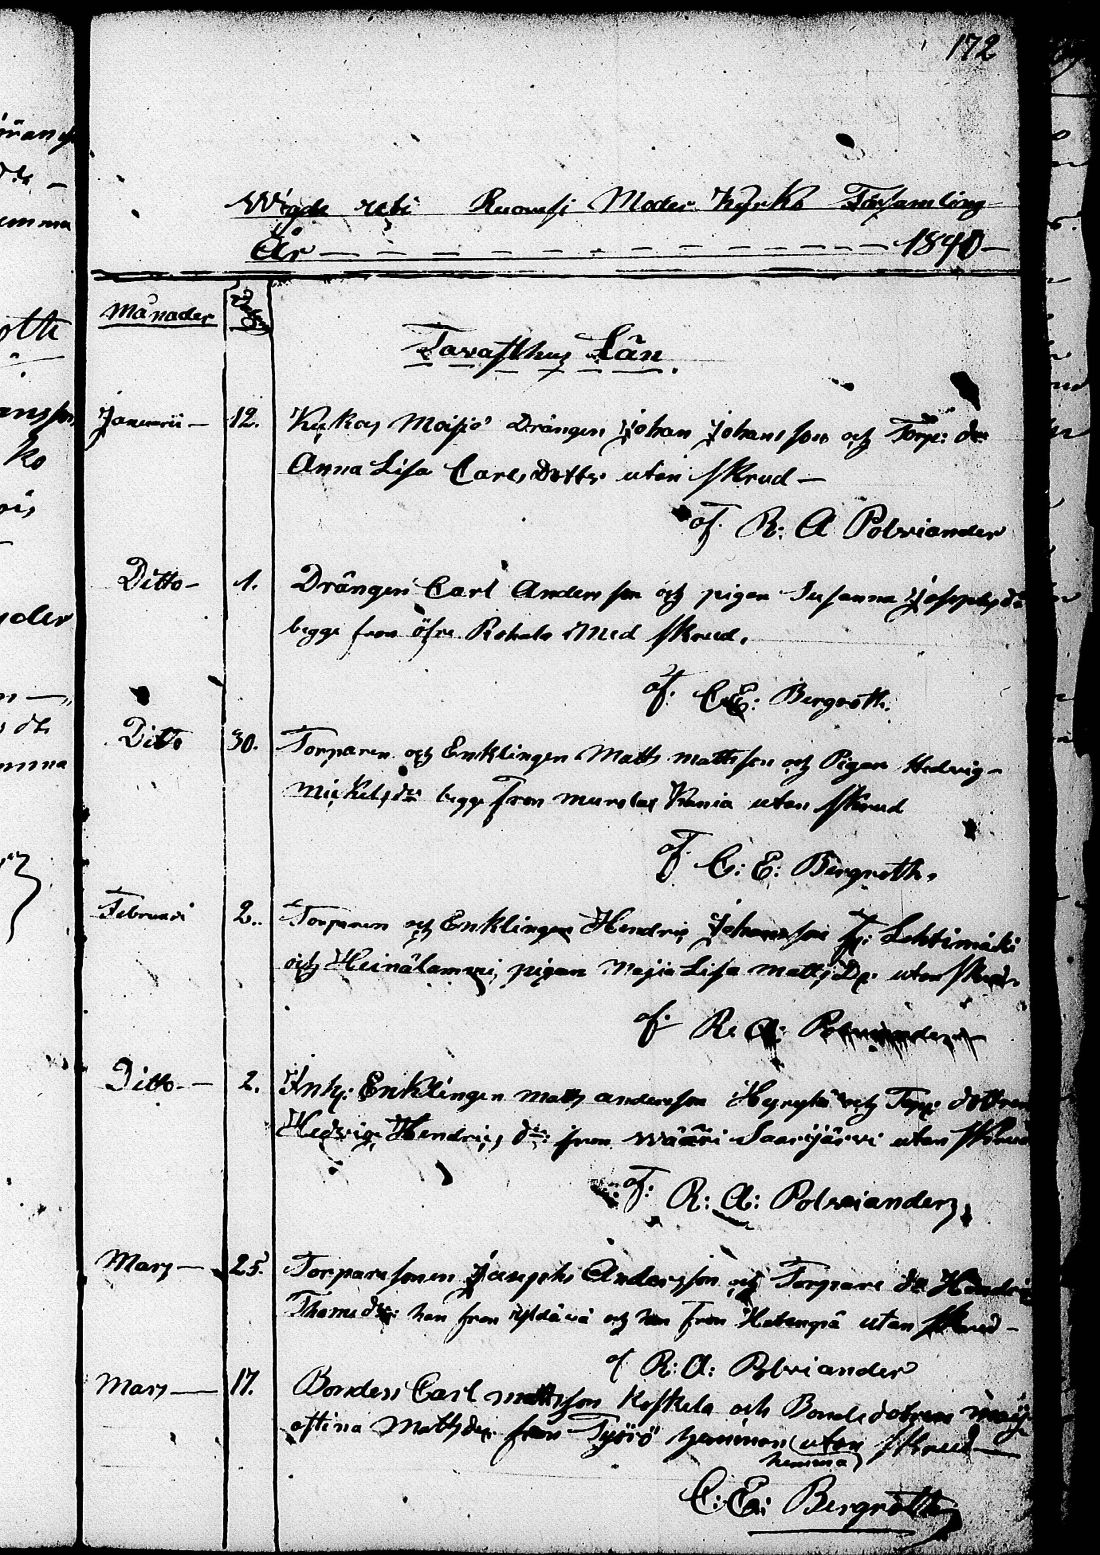 172
Wigde uti Ruovesi Moder Kyrko Församling
År 1840
Månader
Tavasthus Län.
Januarii 12. Drängen Johan Johansson och Torp: dr
Anna Lisa Carls Dotter utan skrud
af. R: A Polviander
Ditto 1. Drängen Carl Andersson och pigan Susanna Josephs dr
begge från öfre med skrud.
af. C: E: Bergroth.
Ditto 30. Torparen och Enklingen Matts Mattsson och Pigan Hedvig
Mickels dr begge från utan skrud
af. C: E: Bergroth.
Februari 2. Torparen och Enklingen Hendric Johansson fr: Lehtimäki
och pigan Maja Lisa Matts Dr utan skrud
af: R: A: Polviander
Ditto 2. Inh: Enklingen Matts Andersson och Torp: dottren
Hedvig Hendrics dr: från Wääri Saarijärvi utan skrud
af: R: A: Polviander
Mars 25. Torparesonen Joseph Andersson och Torpare dr Hendrica
Thomæ dr: han från och hon från utan skrud
af R: A: Polviander
Mars 17. Bonden Carl Mattsson Koskela och Bonde dottren
Matts dr från utan skrud
hemma
C: E: Bergroth